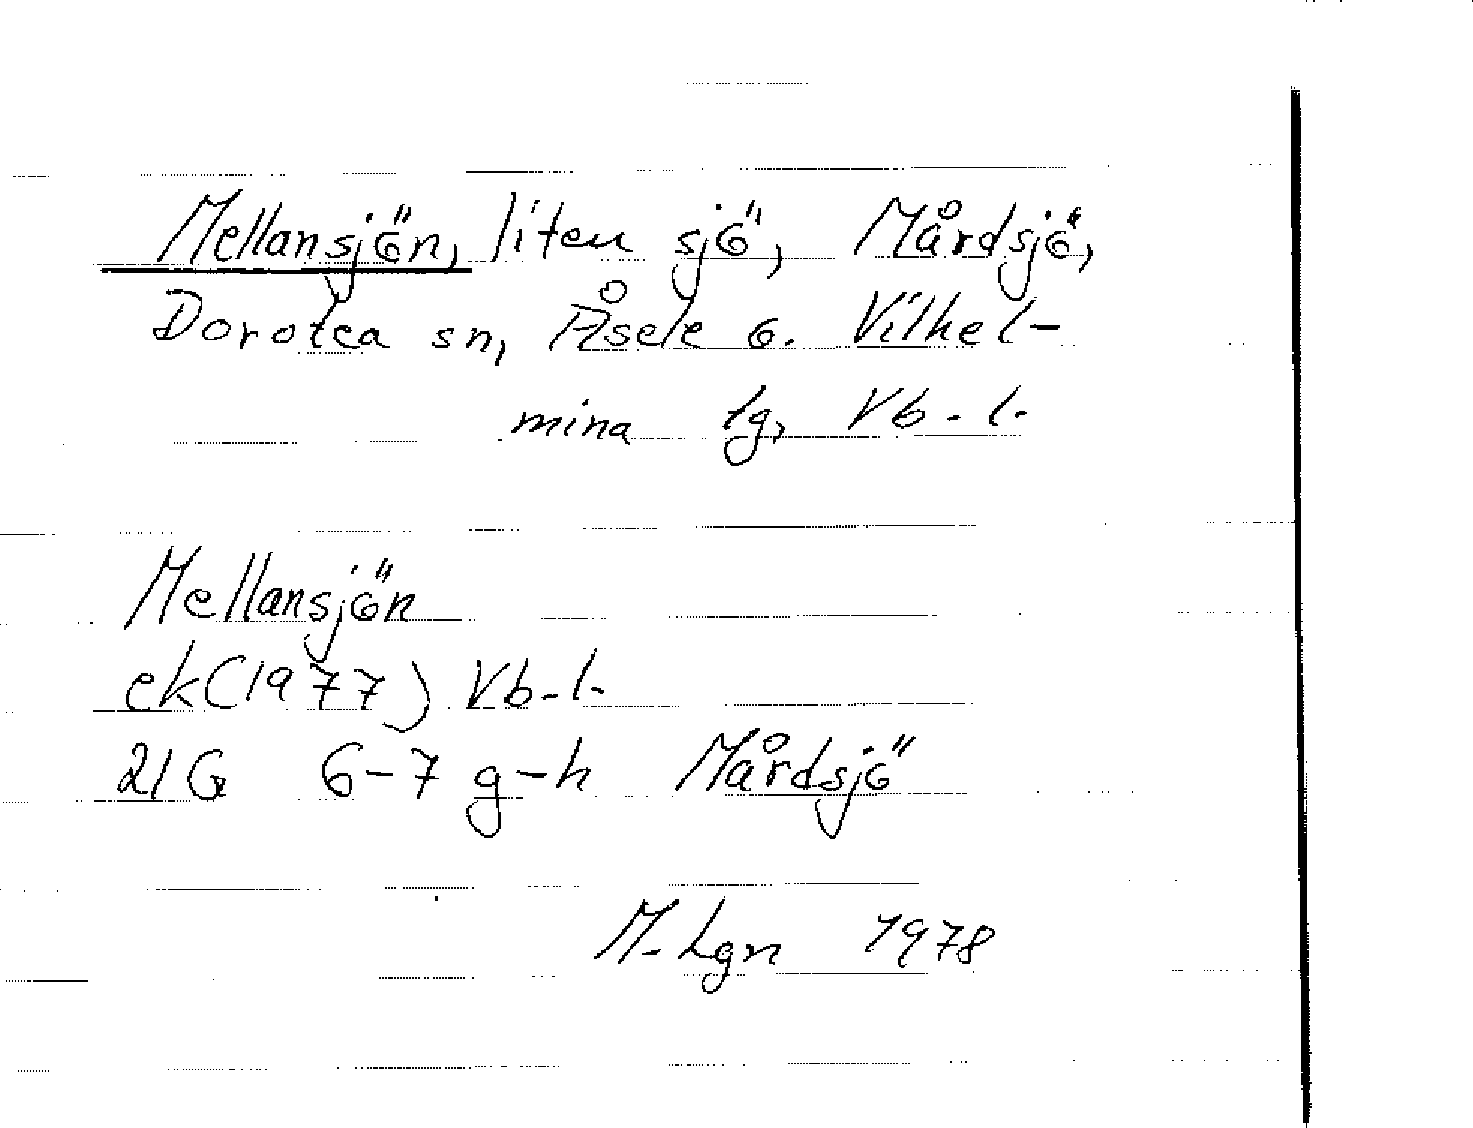 Mellansjön, liten sjö, Mårdsjö,
Dorotea sn, Åsele o. Vilhel-
mina tg, Vb. l.
Mellansjön
ek (1977) Vb. l.
21 G 6-7 g-h Mårdsjö
M. Lgn 1978